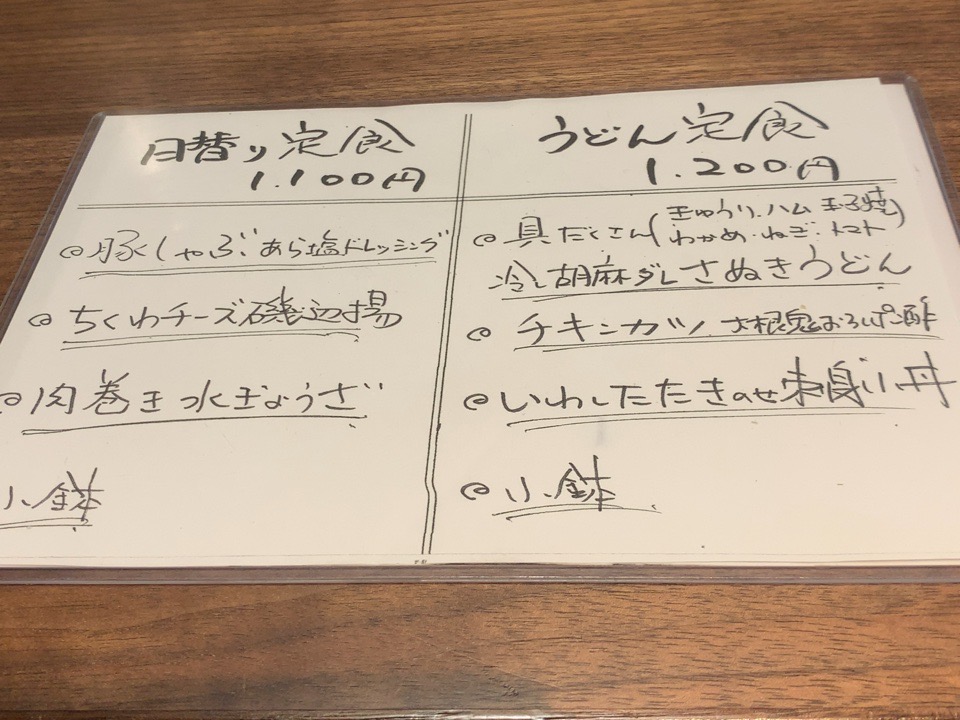 日替り定食
1.100円
豚しゃぶ あら塩ドレッシング
ちくわチーズ磯辺揚
肉巻き水ぎょうざ
小鉢
うどん定食
1.200円
具だくさん(きゅうり、ハム 玉子焼
わかめ・ねぎ・トマト)
冷し胡麻ダレさぬきうどん
チキンカツ 大根鬼おろしポン酢
いわしたたきのせ刺身小丼
小鉢